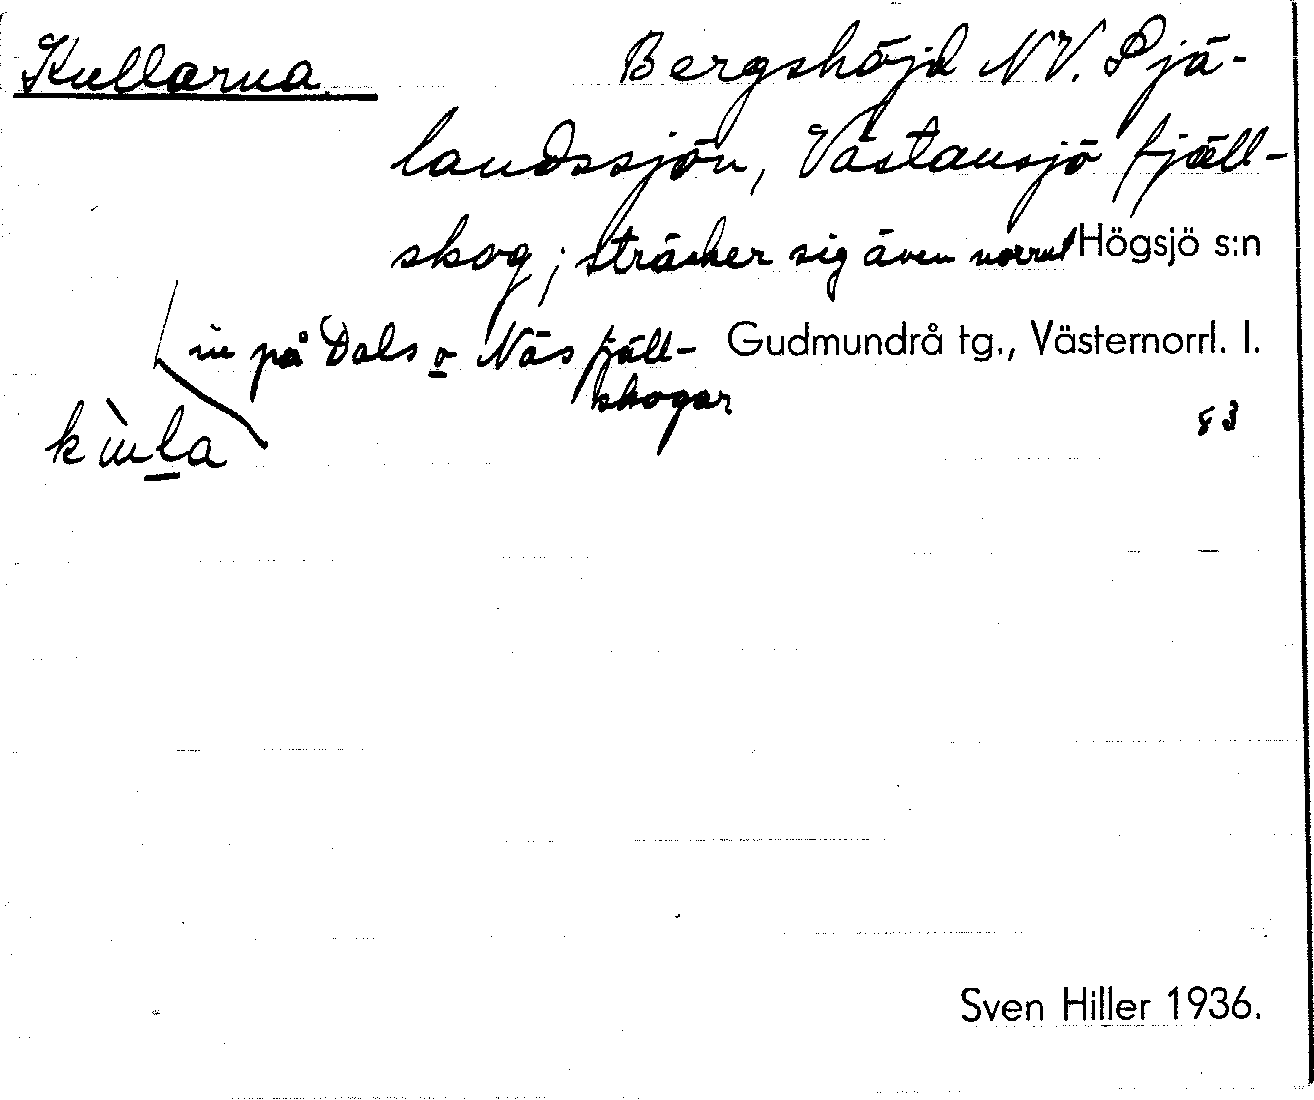 Kullarna Bergshöjd NV. Pjä-
landssjön, Västansjö fjäll-
skog; sträcker sig även norrut Högsjö s:n
in på Dals o Näs fjäll- Gudmundrå tg., Västernorrl. l.
skogar
83
Sven Hiller 1936.